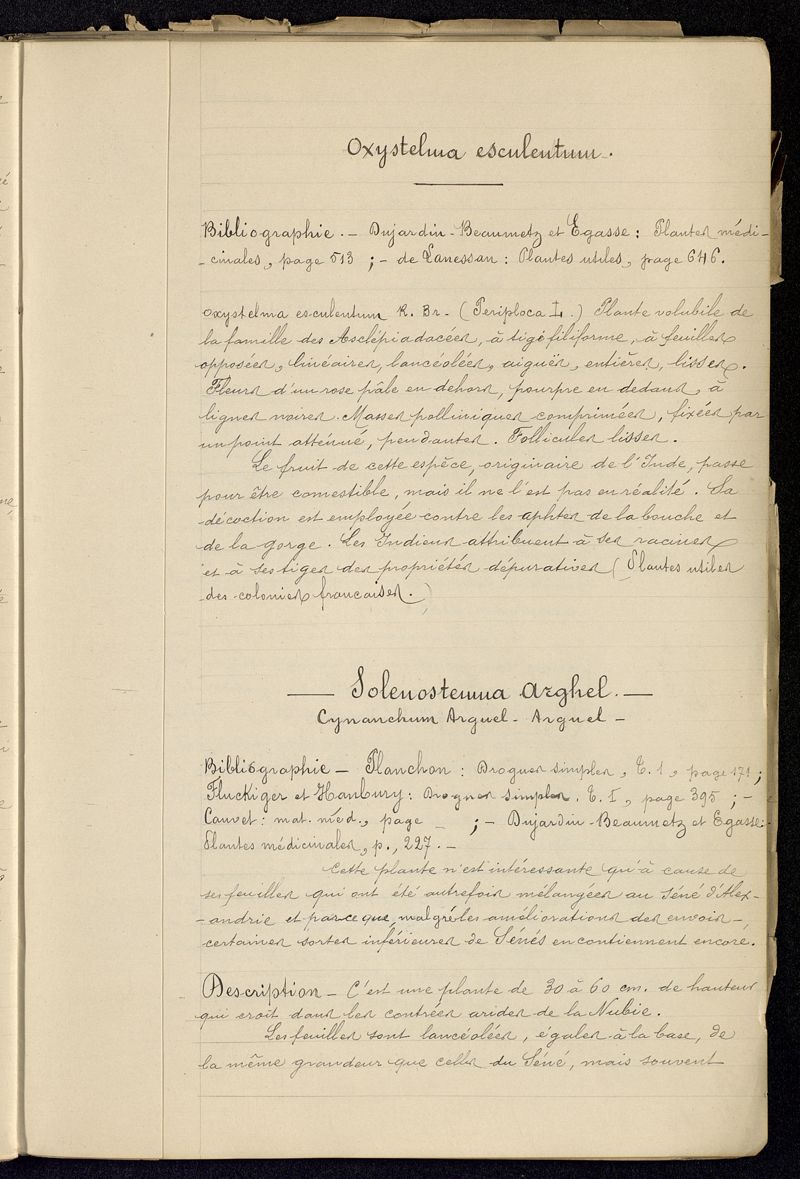 Oxystelma esculentum.
Bibliographie. — Dujardin-Beaumetz et Egasse : Plantes médi-
-cinales, page 513 ; — de Lanessan : Plantes utiles, page 646.
Oxystelma esculentum R. Br. — (Periploca L.) Plante volubile de
la famille des Asclépiadacées, à tige filiforme, à feuilles
opposées, linéaires, lancéolées, aiguës, entières, lisses.
Fleurs d'un rose pâle en dehors, pourpre en dedans, à
lignes noires. Masses polliniques comprimées, fixées par
un point atténué, pendantes. Follicules lisses.
Le fruit de cette espèce, originaire de l'Inde, passe
pour être comestible, mais il ne l'est pas en réalité. Sa
décoction est employée contre les aphtes de la bouche et
de la gorge. Les Indiens attribuent à ses racines
et à ses tiges des propriétés dépuratives (Plantes utiles
des colonies françaises.)
— Solenostemna arghel. —
Cynanchum Arguel - Arguel —
Bibliographie — Planchon : Drogues simples, T. 1, page 171 ;
Fluckiger et Hanbury : Drogues simples. T. I, page 395 ; —
Cauvet : mat. méd., page _ ; — Dujardin-Beaumetz et Egasse :
Plantes médicinales, p., 227. —
Cette plante n'est intéressante qu'à cause de
ses feuilles qui ont été autrefois mélangées au Séné d'Alex-
-andrie et parce que, malgré les améliorations des envois —
certaines sortes inférieures de Sénés en contiennent encore.
Description — C'est une plante de 30 à 60 cm. de hauteur
qui croit dans les contrées arides de la Nubie.
Les feuilles sont lancéolées, égales à la base, de
la même grandeur que celles du Séné, mais souvent